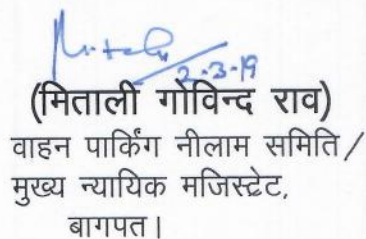 2-3-19
(मिताली गोविन्द राव)
वाहन पार्किंग नीलाम समिति/
मुख्य न्यायिक मजिस्ट्रेट,
बागपत।